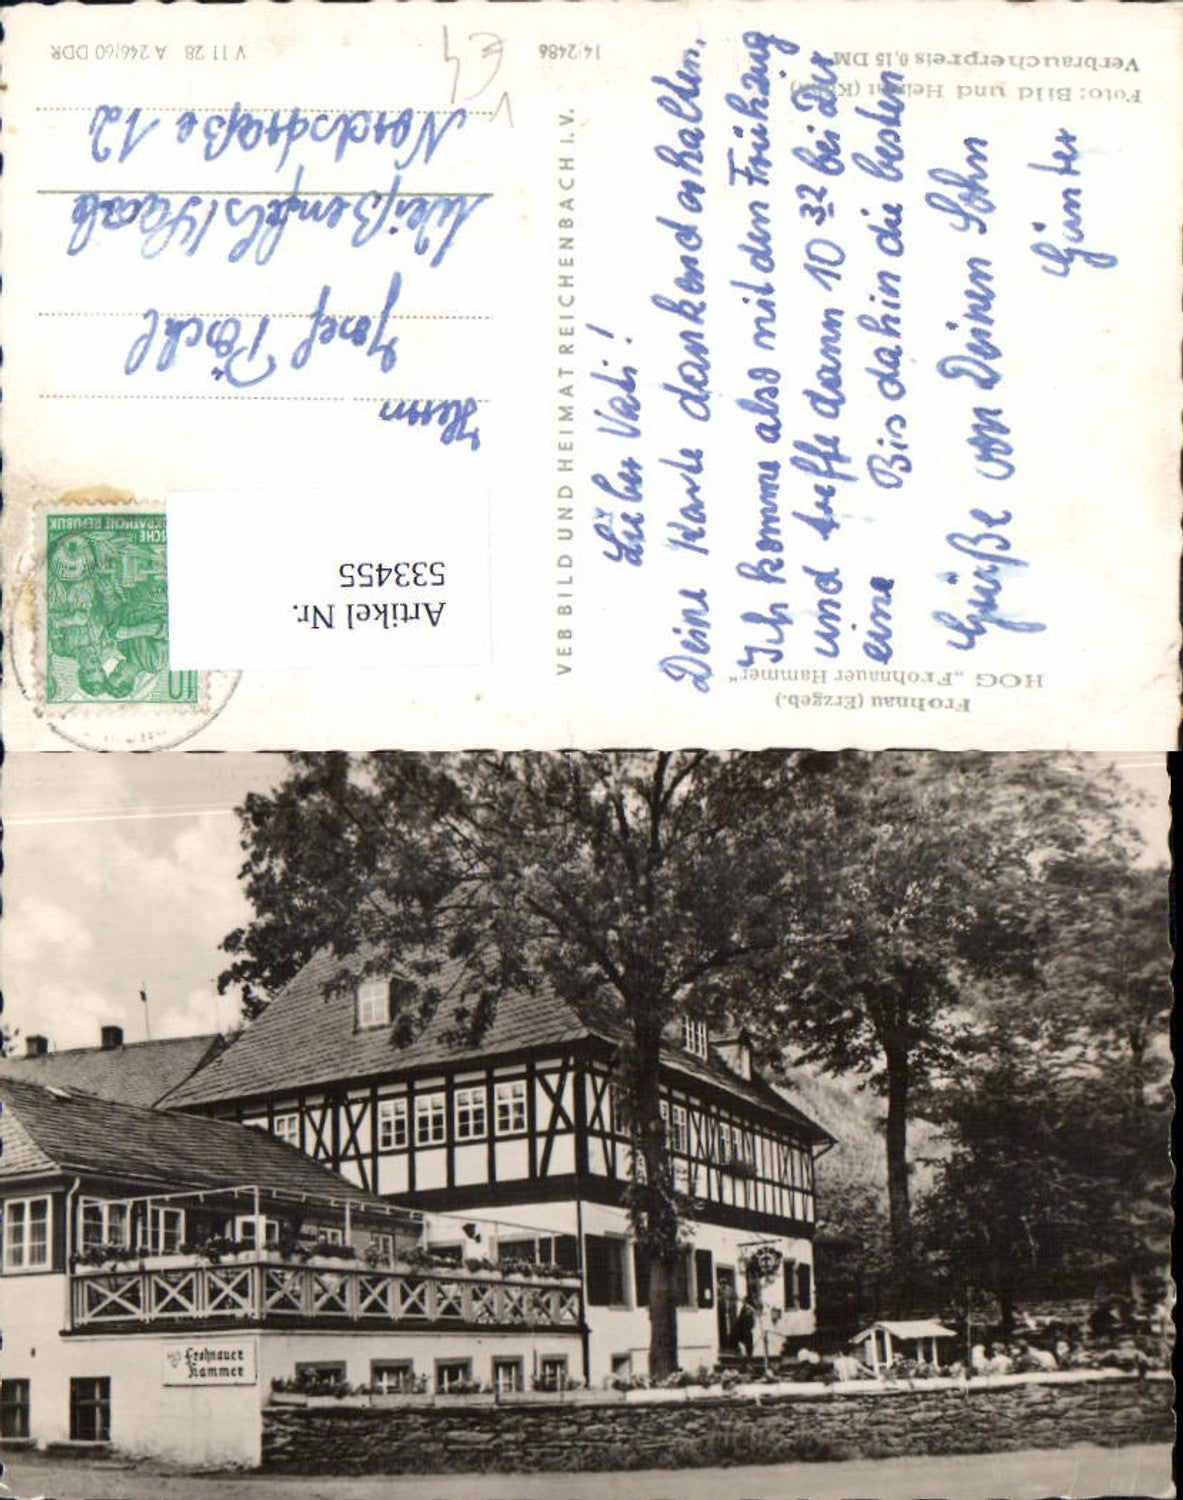 Frohnau (Erzgeb.)
HOG „Frohnauer Hammer“
Lieber Vati!
Deine Karte dankend erhalten.
Ich komme also mit dem Frühzug
und treffe dann 10 32 bei Dir
ein. Bis dahin die besten
Grüße von Deinem Sohn
Günter
Foto: Bild und Heimat
Verbraucherpreis 0,15 DM
VEB BILD UND HEIMAT REICHENBACH I. V.
14/2486
V 11 28 A 246/60 DDR
Artikel Nr.
533455
10
Herrn
Josef Pöschl
Weißenfels/Saale
Nordstraße 12
€4
V
Frohnauer
Hammer